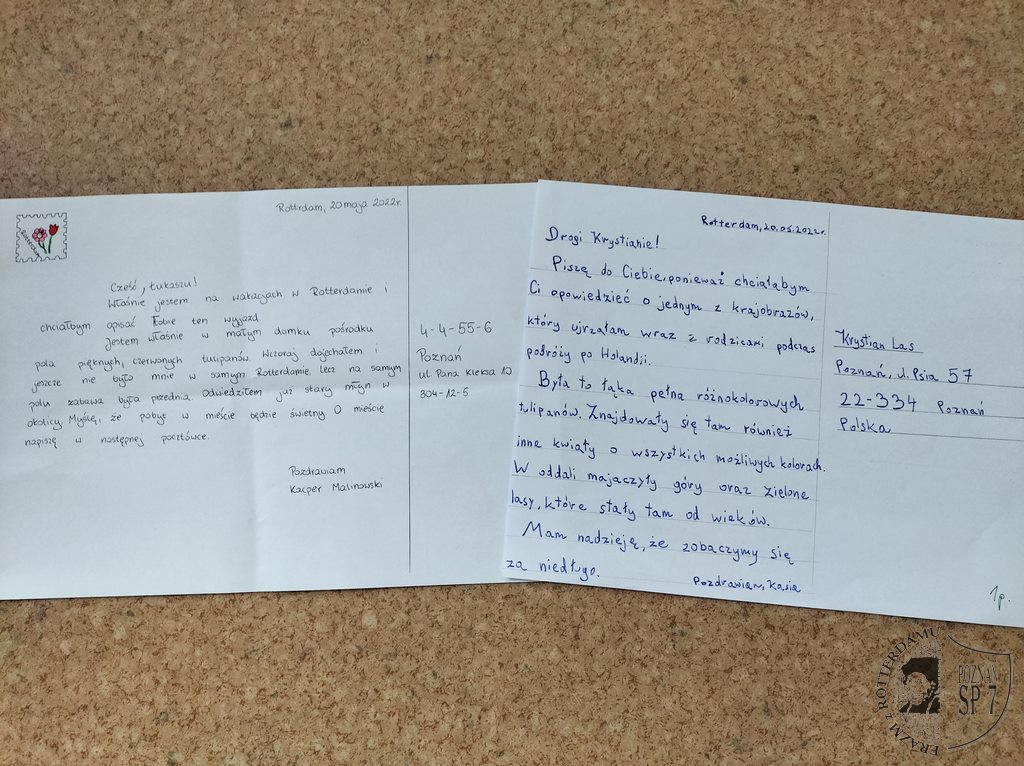 Rottrdam, 20 maja 2022r.
Cześć, Łukaszu!
Właśnie jestem na wakacjach w Rotterdamie i
chciałbym opisać Tobie ten wyjazd.
Jestem właśnie w małym domku pośrodku
pola pięknych, czerwonych tulipanów. Wczoraj dojechałem i
jeszcze nie było mnie w samym Rotterdamie, lecz na samym
polu zabawa była przednia. Odwiedziłem już stary młyn w
okolicy. Myślę, że pobyt w mieście będzie świetny. O mieście
napiszę w następnej pocztówce.
Pozdrawiam
Kacper Malinowski
4-4-55-6
Poznań
ul. Pana Kleksa 10
304-12-5
Rotterdam, 20.05.2022r.
Drogi Krystianie!
Piszę do Ciebie, ponieważ chciałabym
Ci opowiedzieć o jednym z krajobrazów,
który ujrzałam wraz z rodzicami podczas
podróży po Holandii.
Była to łąka pełna różnokolorowych
tulipanów. Znajdowały się tam również
inne kwiaty o wszystkich możliwych kolorach.
W oddali majaczyły góry oraz zielone
lasy, które stały tam od wieków.
Mam nadzieję, że zobaczymy się
za niedługo.
Pozdrawiam, Kasia
Krystian Las
Poznań, ul. Psia 57
22-334 Poznań
Polska
1p.
ERAZM z ROTTERDAMU
POZNAŃ
SP 7